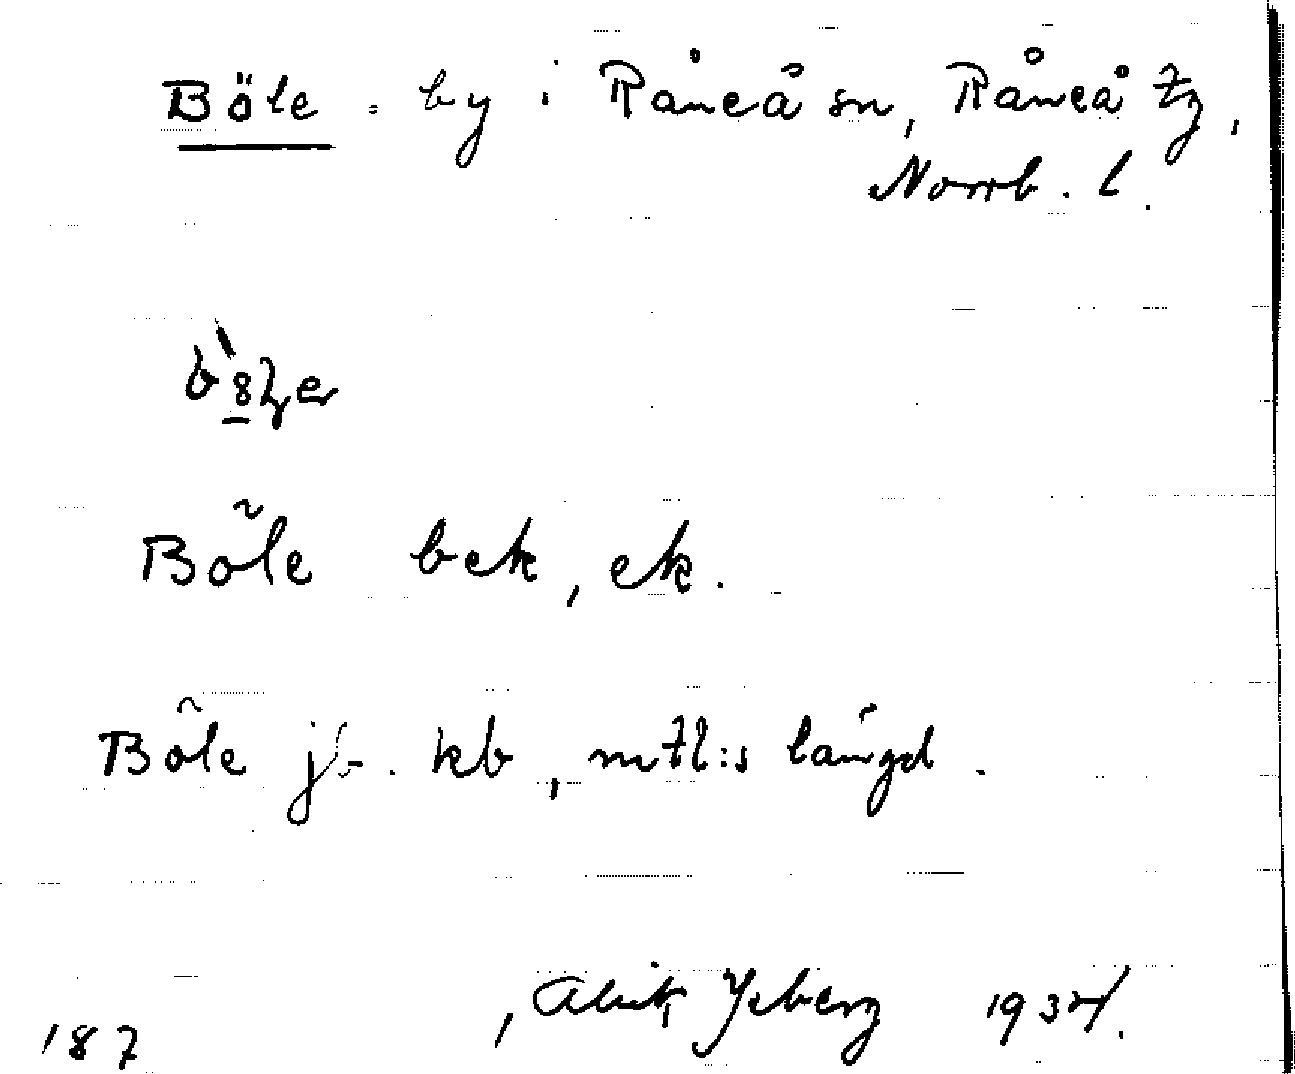 Böle = by i Råneå sn, Råneå tg,
Norrb. l.
Böle bek, ek.
Böle jb. kb, mtl:s längd.
187
Ysberg 1934.